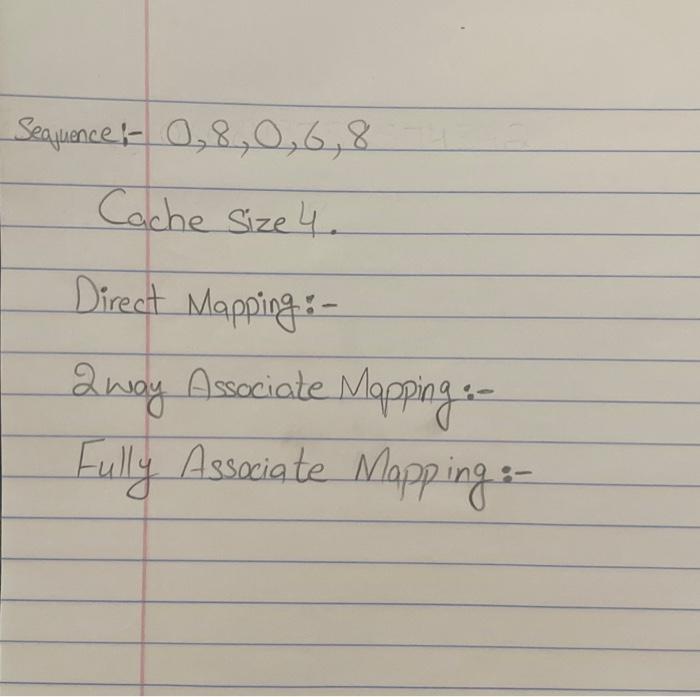 Sequence:- 0,8,0,6,8
Cache Size 4.
Direct Mapping:-
2way Associate Mapping:-
Fully Associate Mapping:-